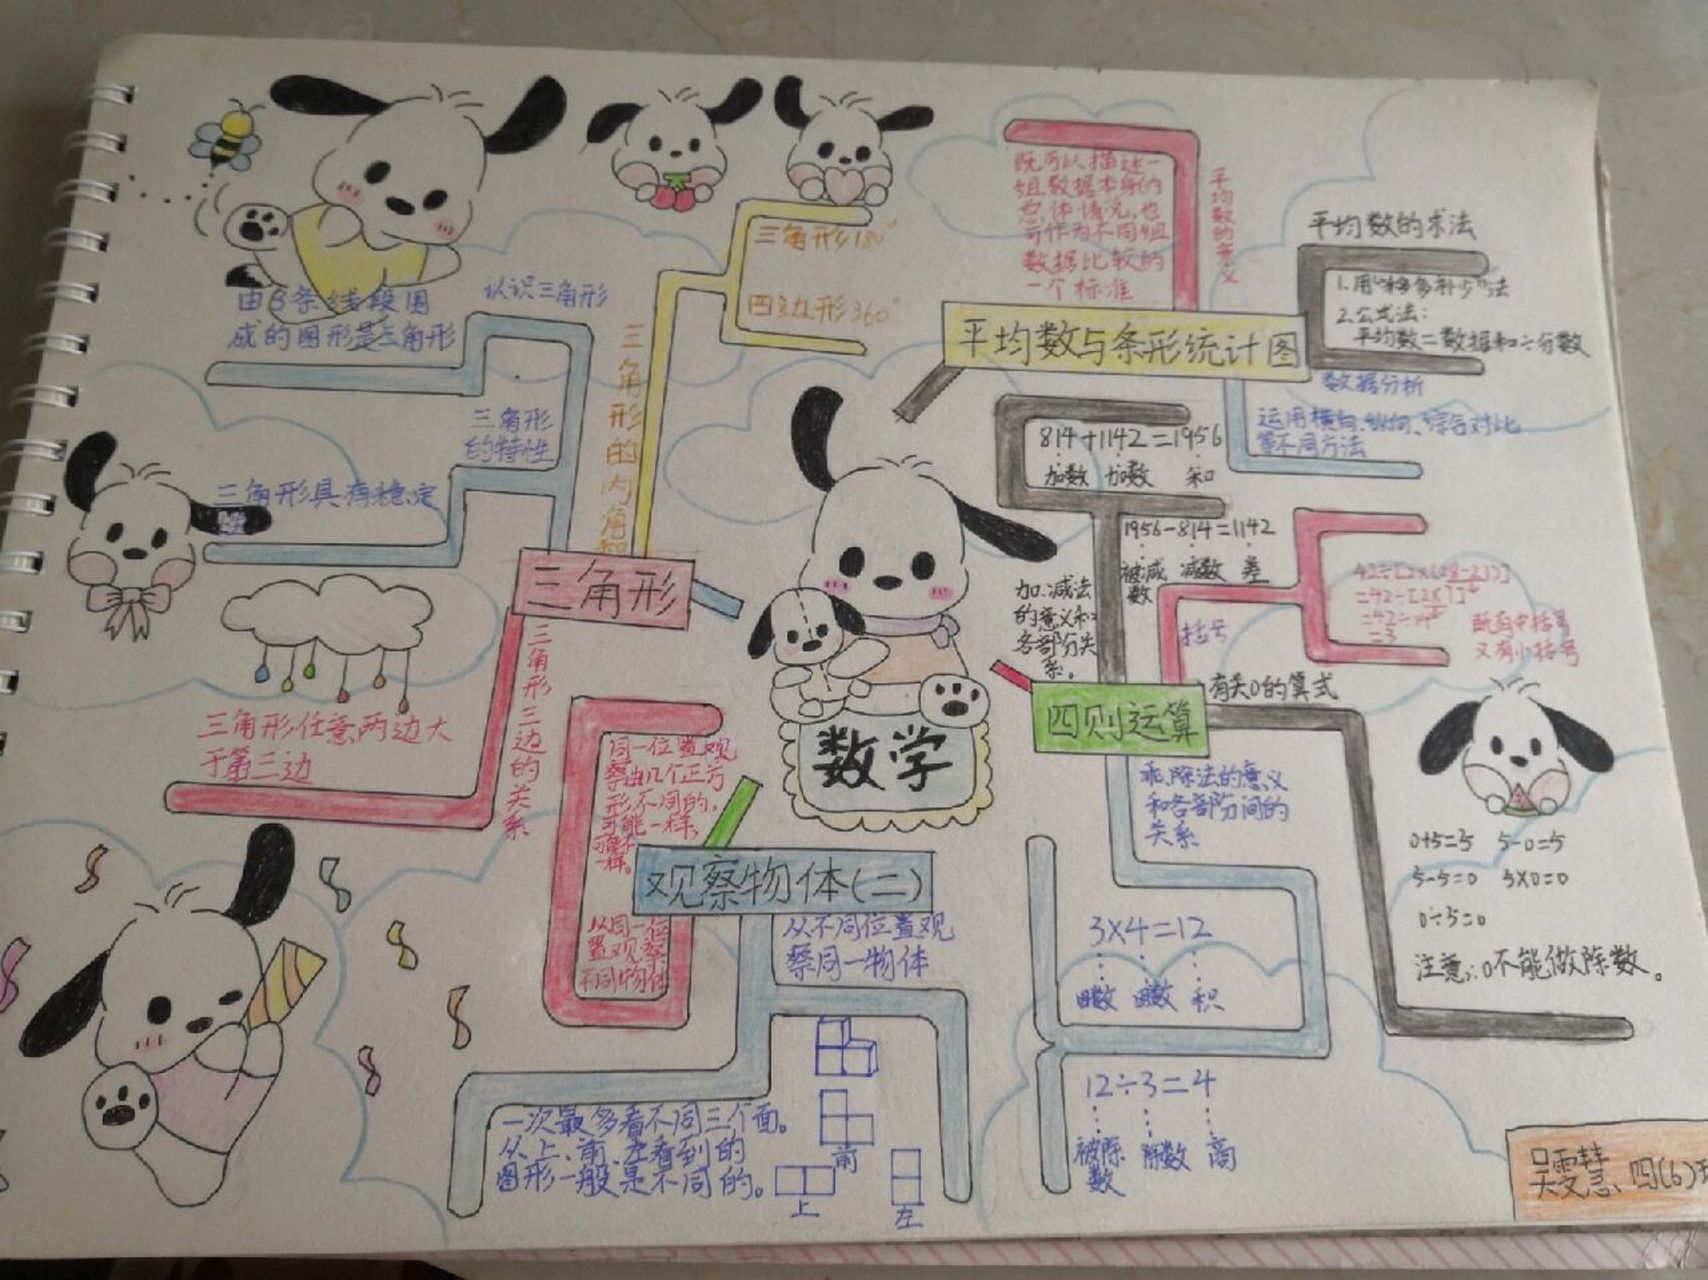 由3条线段围
成的图形是三角形
认识三角形
三角形
的特性
三角形具有稳定
性
三角形180°
四边形360°
三角形的内角和
三角形
三角形三边的关系
三角形任意两边大
于第三边
既可以描述一
组数据本身的
总体情况,也
可作为不同组
数据比较的
一个标准
平均数的意义
平均数的求法
1.用“移多补少”法
2.公式法:
平均数=数据和÷份数
平均数与条形统计图
数据分析
运用横向、纵向、综合对比
等不同方法
814+1142=1956
加数 加数 和
1956-814=1142
被减数 减数 差
加、减法
的意义和
各部分关
系。
括号
42÷[2×(28-21)]
=42÷[2×7]
=42÷14
=3
既有中括号
又有小括号
四则运算
有关0的算式
0+5=5 5-0=5
5-5=0 5×0=0
0÷5=0
注意:0不能做除数。
乘、除法的意义
和各部分间的
关系
3×4=12
因数 因数 积
12÷3=4
被除数 除数 商
数学
同一位置观
察由几个正方
形不同的,
可能一样,
可能不
一样。
观察物体(二)
从同一位
置观察
不同物体
从不同位置观
察同一物体
一次最多看不同三个面。
从上、前、左看到的
图形一般是不同的。
前
上
左
吴雯慧、四(6)班